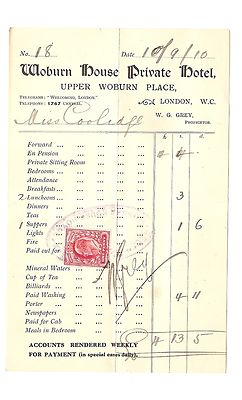 No. 18 Date 10/9/10
Woburn House Private Hotel,
UPPER WOBURN PLACE,
TELEGRAMS: "WELCOMING, LONDON."
TELEPHONE: 1767 CENTRAL.
LONDON, W.C.
W. G. GREY,
PROPRIETOR.
Miss Coolidge
Forward
En Pension 4 4
Private Sitting Room
Bedrooms
Attendance
Breakfasts
2 Luncheons 3
Dinners
Teas
1 Suppers 1 6
Lights
Fire
Paid out for
Mineral Waters
Cup of Tea
Billiards
Paid Washing 4 11
Porter
Newspapers
Paid for Cab
Meals in Bedroom
£ 4 13 5
ACCOUNTS RENDERED WEEKLY
FOR PAYMENT (in special cases daily).